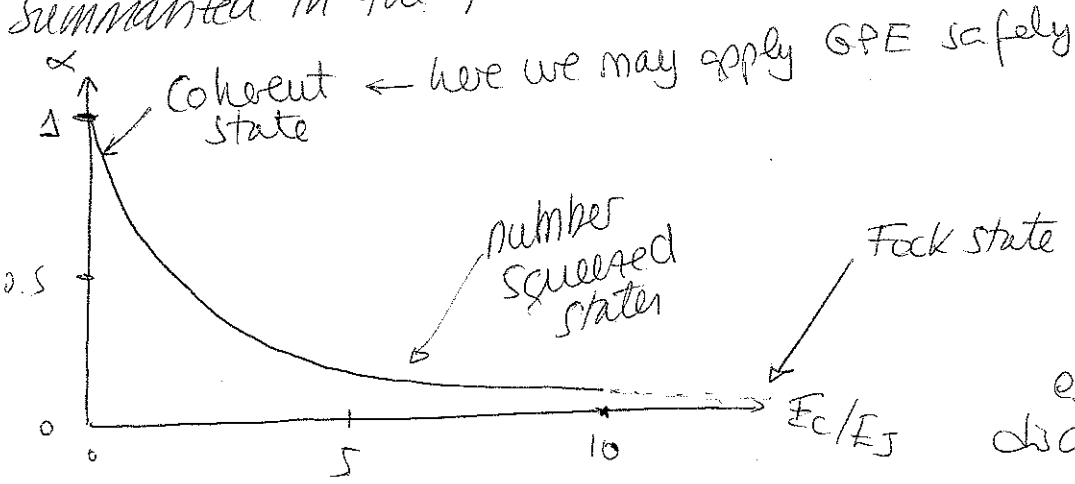 summarized in the
α
Coherent ← here we may apply GPE safely
state
1
number
squeezed
states
Fock state
0.5
0
0
5
10
Ec/EJ